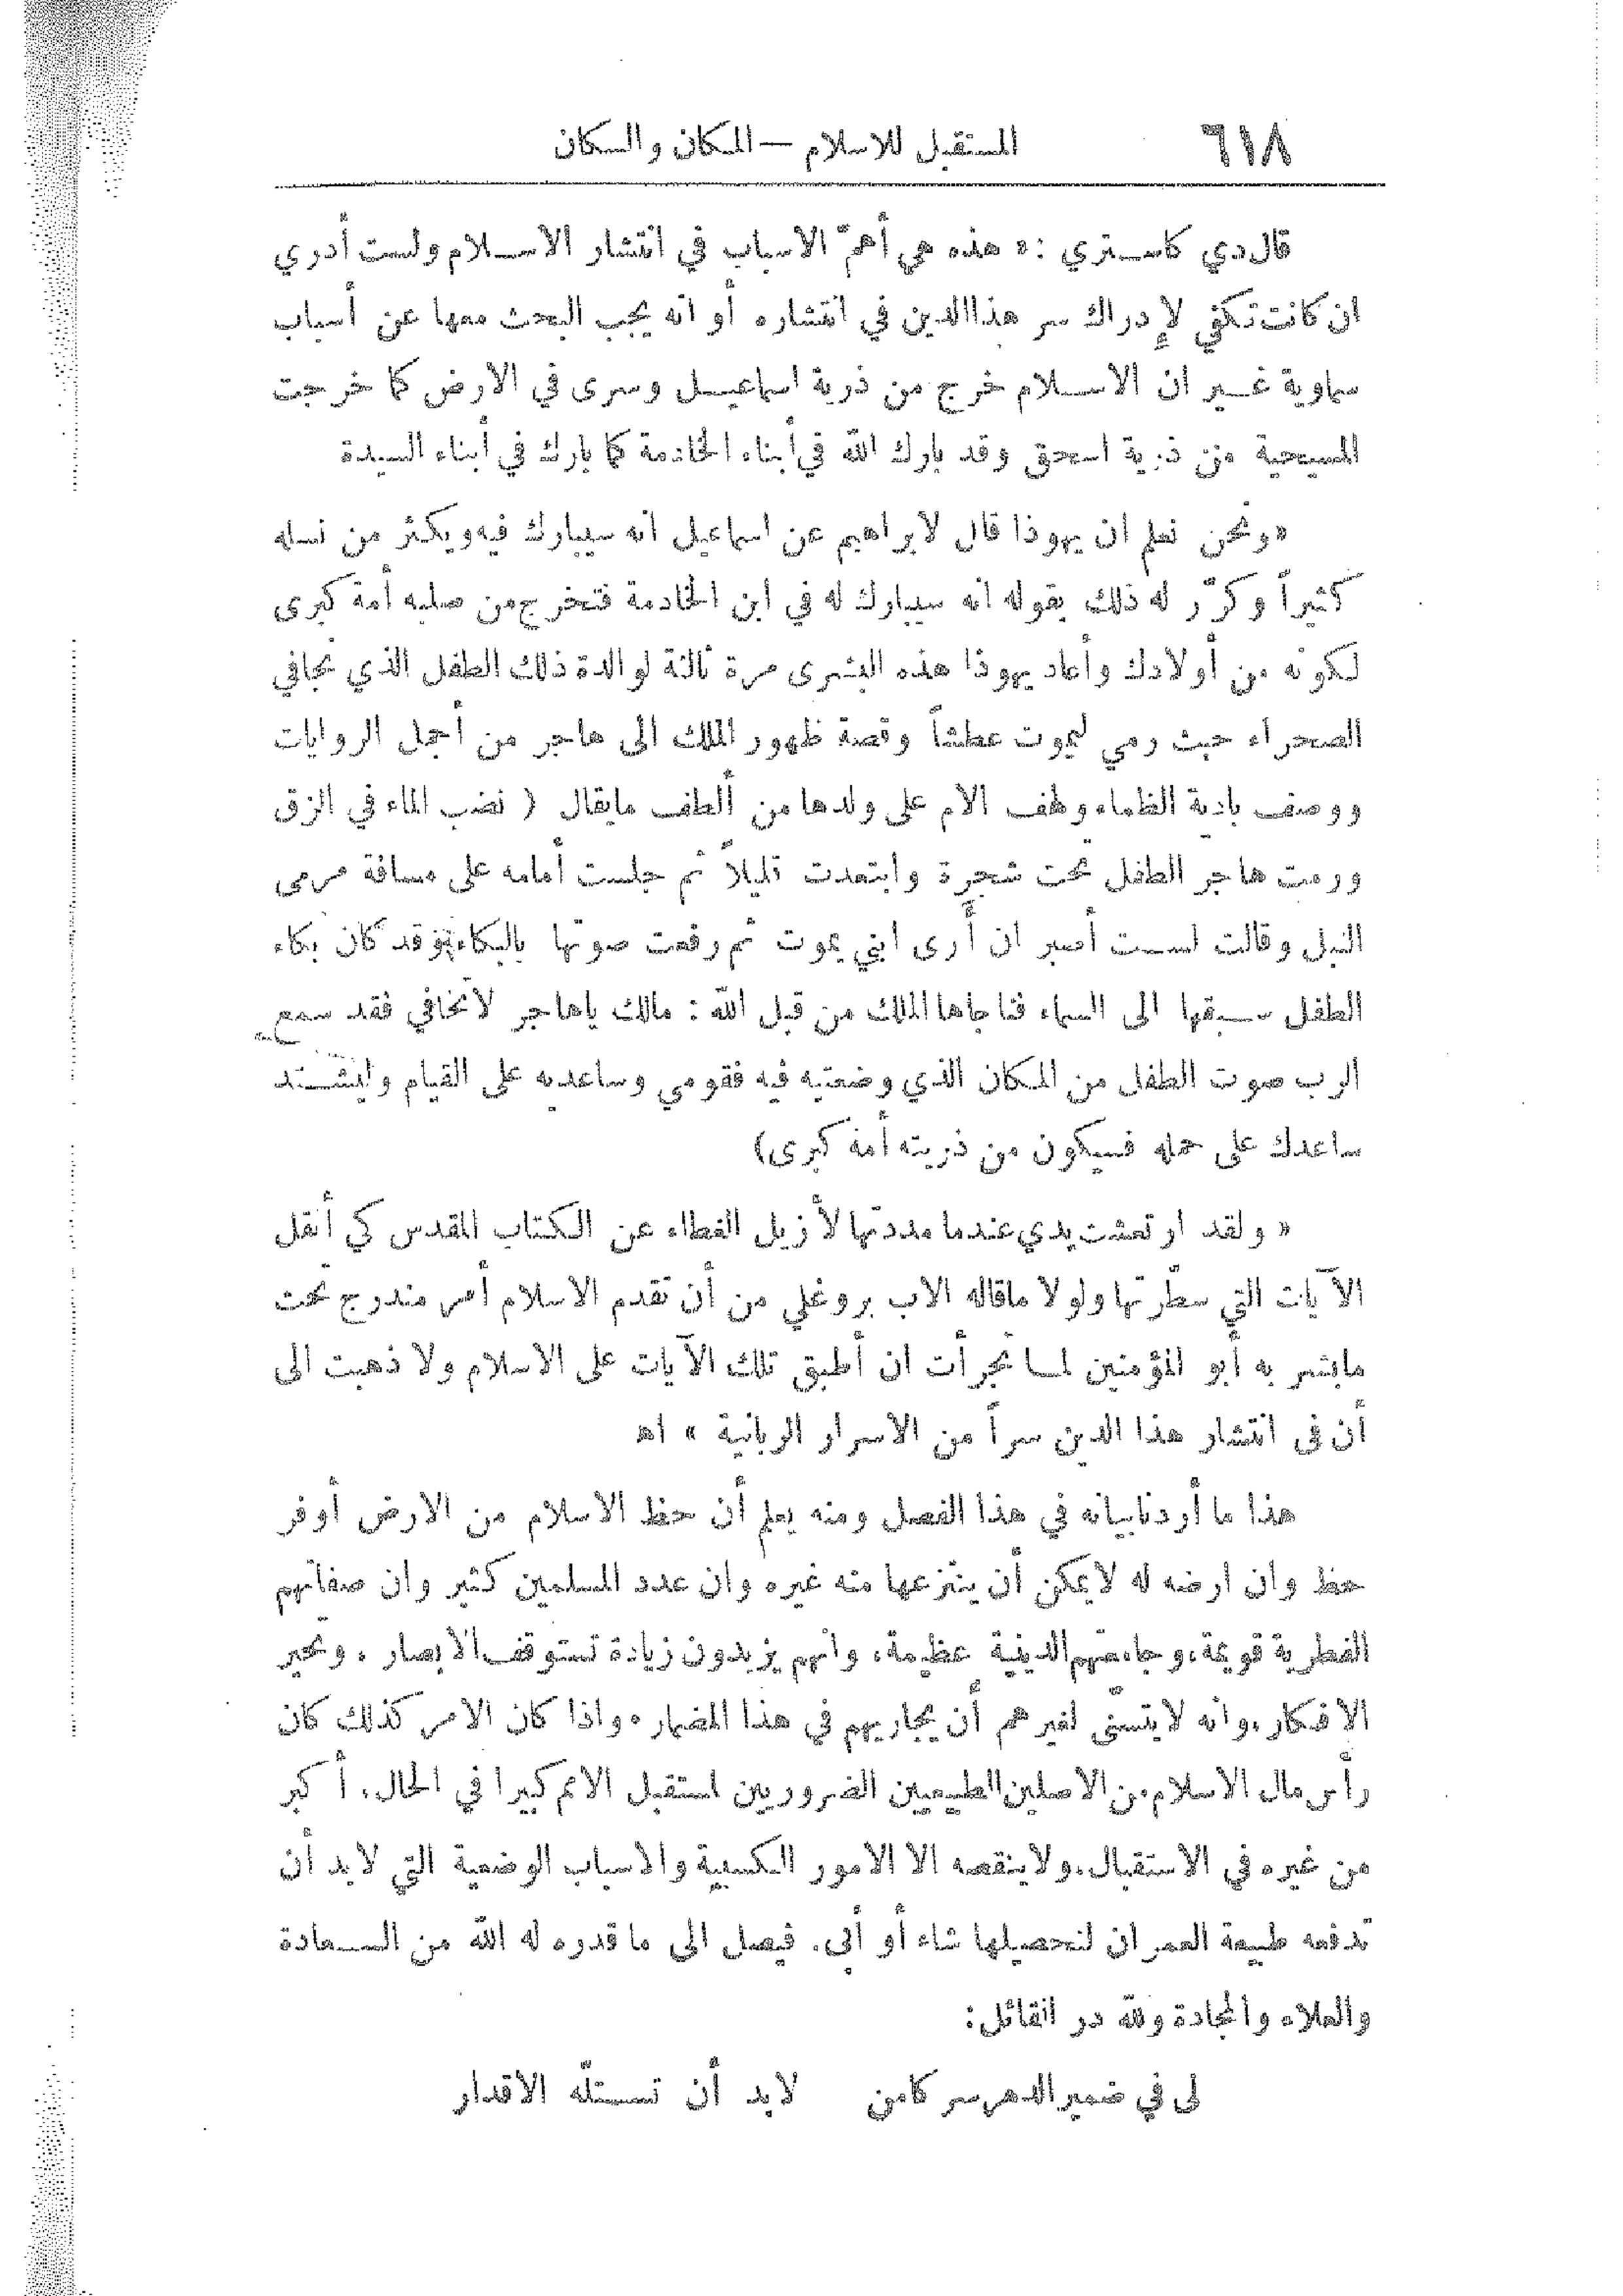 ٦١٨ المستقبل للاسلام — المكان والسكان
قال دي كاستري : « هذه هي أهمّ الاسباب في انتشار الاسلام ولست أدري
ان كانت تكفي لإدراك سر هذا الدين في انتشاره أو انه يجب البحث معها عن أسباب
سماوية غير ان الاسلام خرج من ذرية اسماعيل وسرى في الارض كما خرجت
المسيحية من ذرية اسحق وقد بارك الله في أبناء الخادمة كما بارك في أبناء السيدة
« ونحن نعلم ان يهوذا قال لابراهيم عن اسماعيل انه سيبارك فيه ويكثر من نسله
كثيراً وكرّر له ذلك بقوله انه سيبارك له في ابن الخادمة فتخرج من صلبه أمة كبرى
لكونه من أولادك وأعاد يهوذا هذه البشرى مرة ثالثة لوالدة ذلك الطفل الذي نجا في
الصحراء حيث رمي ليموت عطشاً وقصة ظهور الملك الى هاجر من أجمل الروايات
ووصف بادية الظماء ولهف الام على ولدها من ألطف مايقال ( نضب الماء في الزق
ورمت هاجر الطفل تحت شجرة وابتعدت قليلاً ثم جلست أمامه على مسافة مرمى
النبل وقالت لست أصبر ان أرى ابني يموت ثم رفعت صوتها بالبكاء وقد كان بكاء
الطفل سبقها الى السماء فناجاها الملك من قبل الله : مالك ياهاجر لاتخافي فقد سمع
الرب صوت الطفل من المكان الذي وضعتيه فيه فقومي وساعديه على القيام وليشتد
ساعدك على حمله فسيكون من ذريته أمة كبرى)
« ولقد ارتعشت يدي عندما مددتها لأزيل الغطاء عن الكتاب المقدس كي أنقل
الآيات التي سطّرتها ولولا ماقاله الاب بروغلي من أن تقدم الاسلام أمر مندرج تحت
مابشر به أبو المؤمنين لما تجرأت ان أطبق تلك الآيات على الاسلام ولا ذهبت الى
أن فى انتشار هذا الدين سراً من الاسرار الربانية » اه
هذا ما أردنا بيانه في هذا الفصل ومنه يعلم أن حظ الاسلام من الارض أوفر
حظ وان ارضه له لايمكن أن ينتزعها منه غيره وان عدد المسلمين كثير وان صفاتهم
الفطرية قويمة، وجامعتهم الدينية عظيمة، وانهم يزيدون زيادة تستوقف الابصار ، وتحير
الافكار، وانه لايتسنّى لغيرهم أن يجاريهم في هذا المضمار، واذا كان الامر كذلك كان
رأس مال الاسلام من الاصلين الطبيعيين الضروريين لمستقبل الامم كبيرا في الحال، أكبر
من غيره في الاستقبال، ولاينقصه الا الامور الكسبية والاسباب الوضعية التي لابد أن
تدفعه طبيعة العمران لتحصيلها شاء أو أبى. فيصل الى ماقدره له الله من السعادة
والعلاء والمجادة ولله در القائل:
لى في ضمير الدهر سر كامن لابد أن تستلّه الاقدار